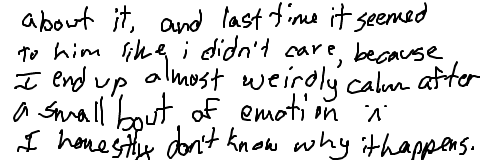 about it, and last time it seemed
to him like i didn't care, because
I end up almost weirdly calm after
a small bout of emotion
I honestly don't know why it happens.